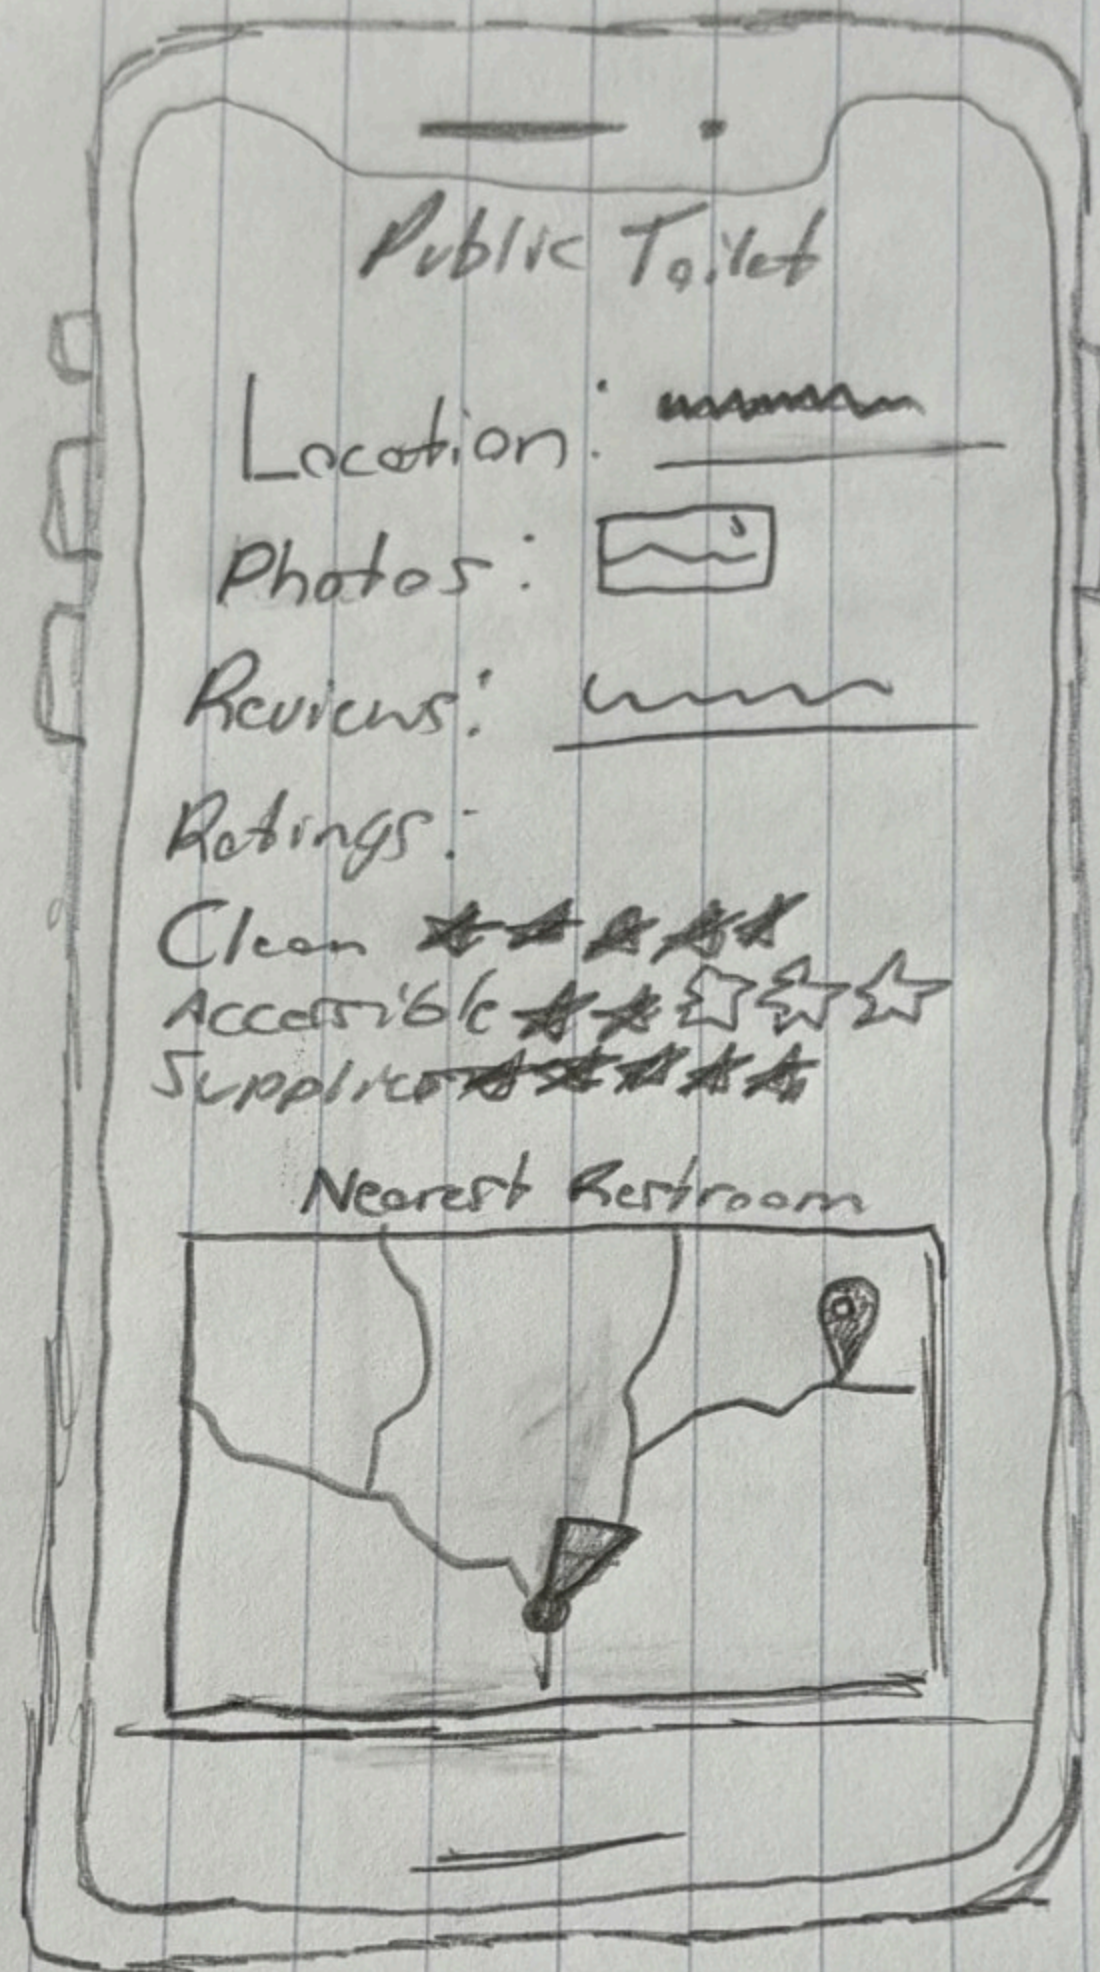 Public Toilet
Location:
Photos:
Reviews:
Ratings:
Clean
Accessible
Supplies
Nearest Restroom